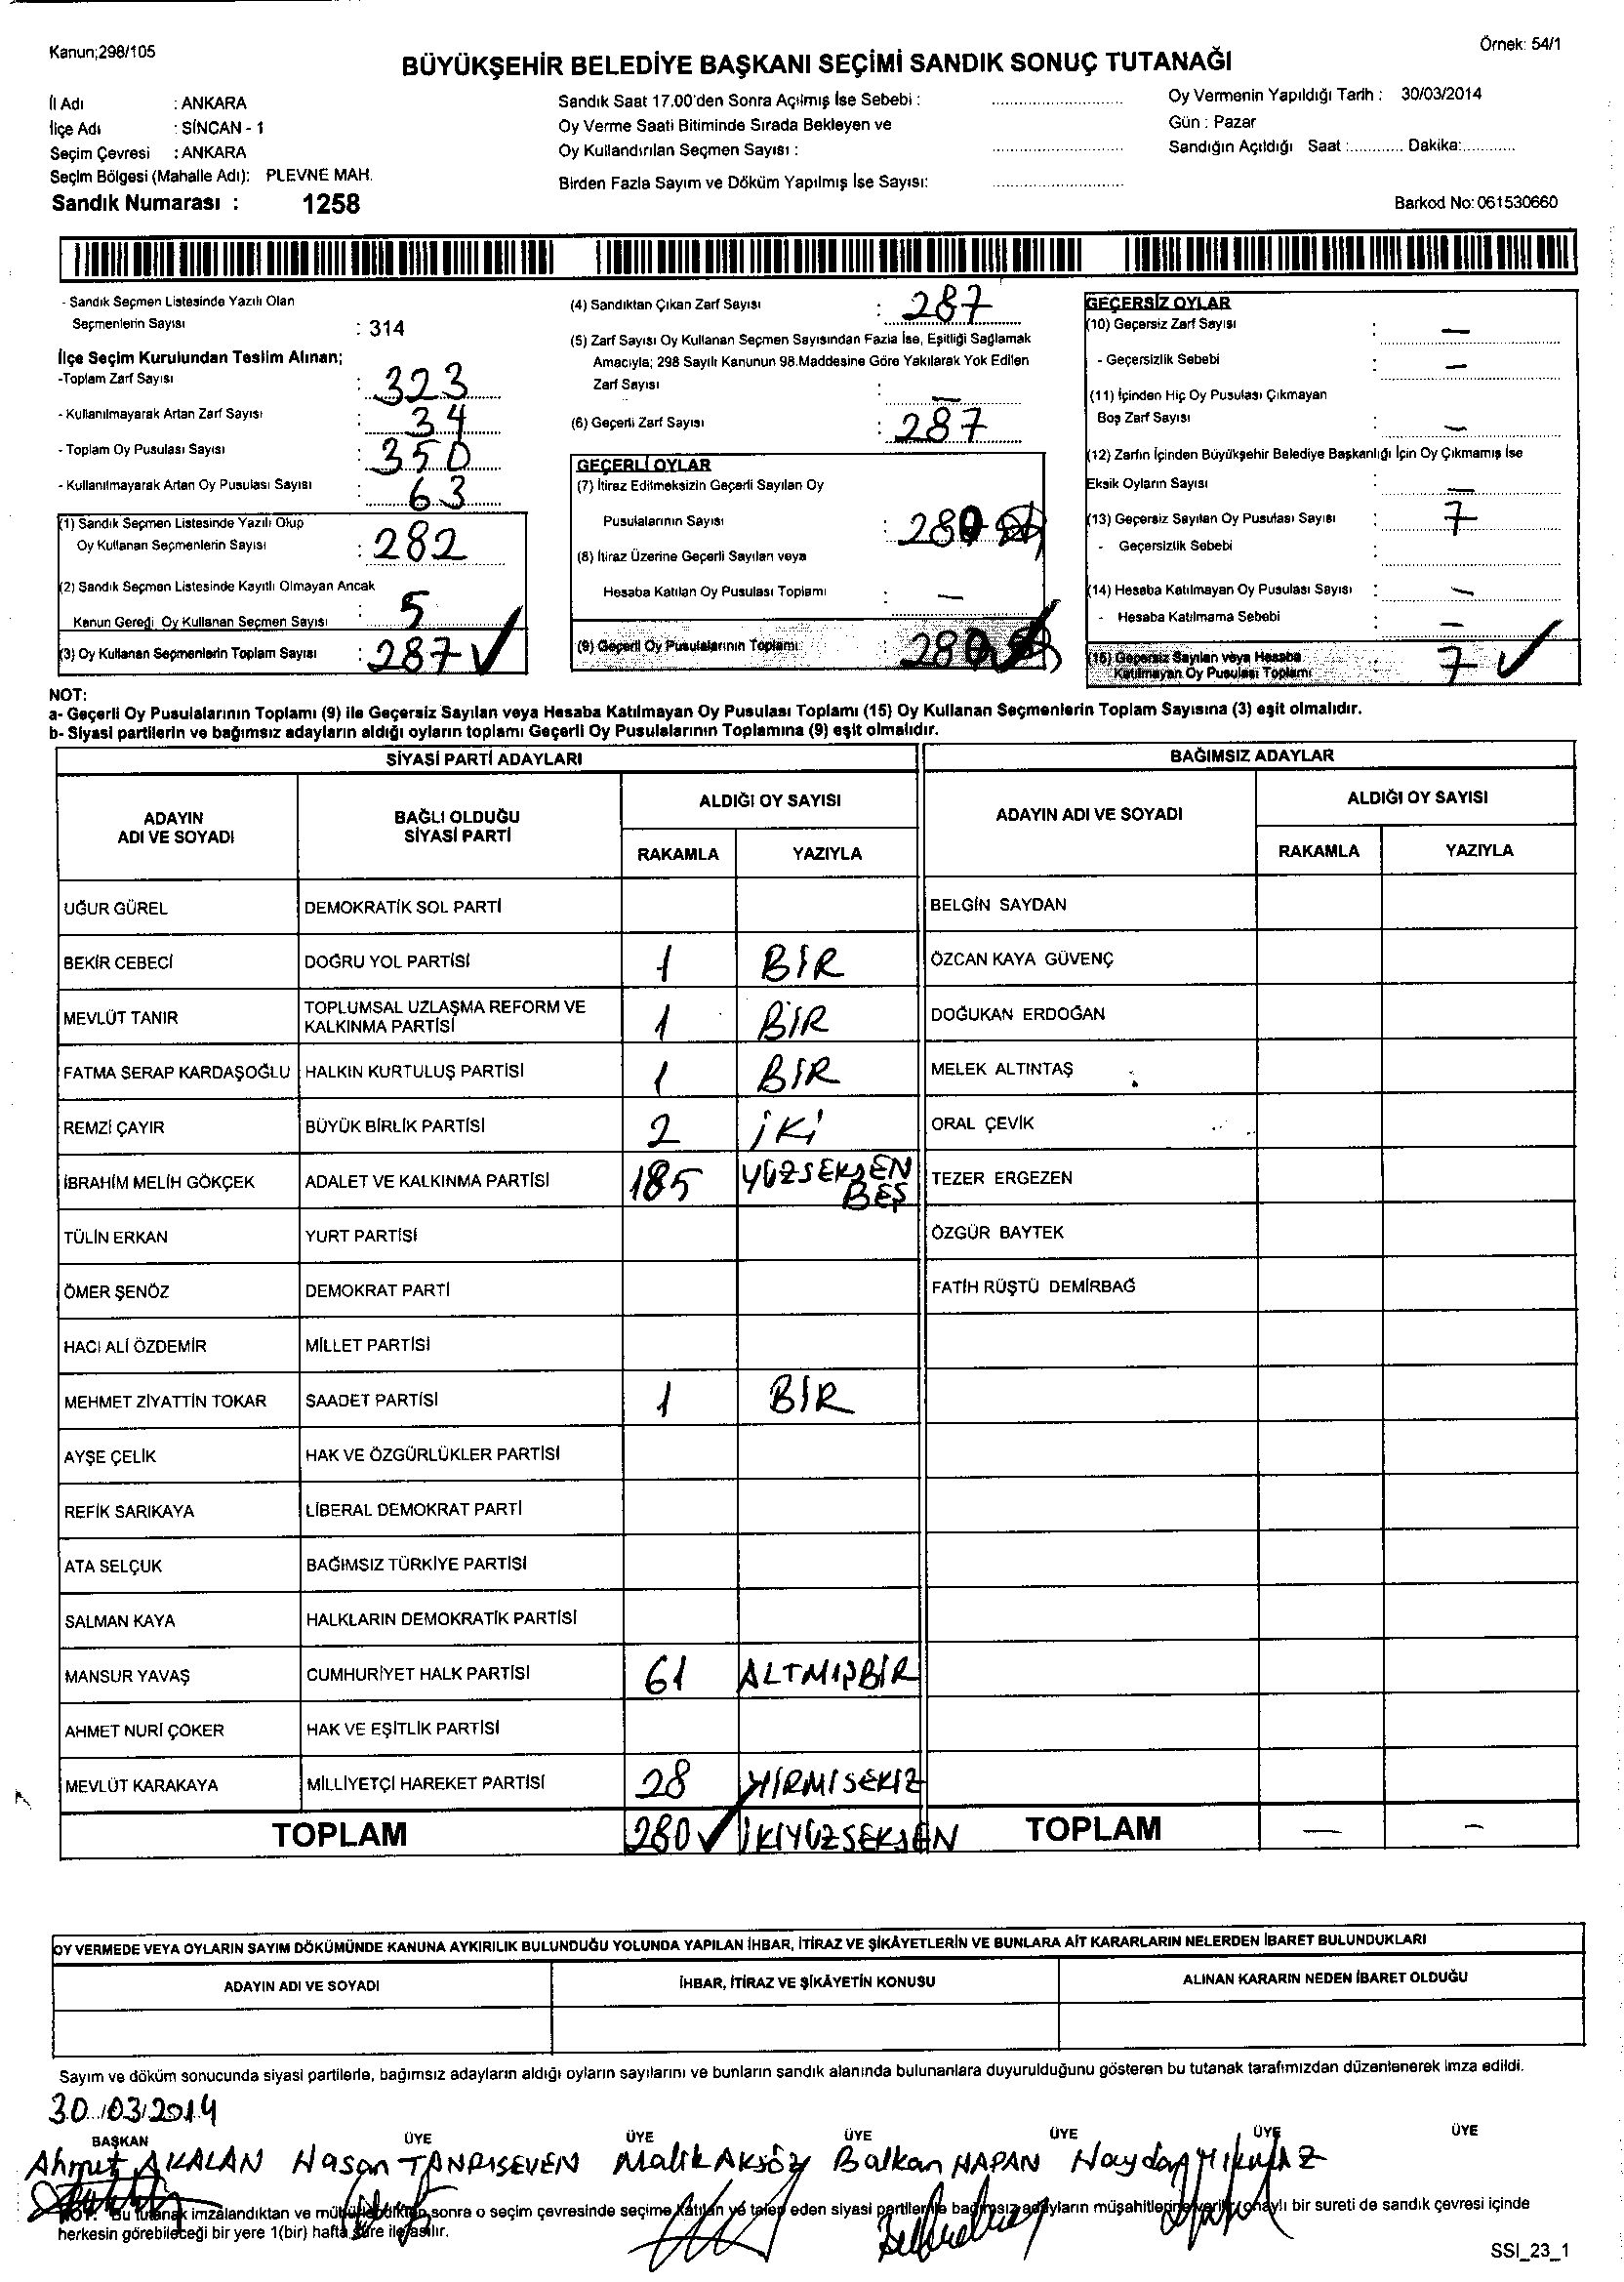 Kanun;298/105
Örnek: 54/1
BÜYÜKŞEHİR BELEDİYE BAŞKANI SEÇİMİ SANDIK SONUÇ TUTANAĞI
İl Adı : ANKARA
İlçe Adı : SİNCAN - 1
Seçim Çevresi : ANKARA
Seçim Bölgesi (Mahalle Adı): PLEVNE MAH.
Sandık Numarası : 1258
Sandık Saat 17.00'den Sonra Açılmış İse Sebebi :
Oy Verme Saati Bitiminde Sırada Bekleyen ve
Oy Kullandırılan Seçmen Sayısı :
Birden Fazla Sayım ve Döküm Yapılmış İse Sayısı:
Oy Vermenin Yapıldığı Tarih : 30/03/2014
Gün : Pazar
Sandığın Açıldığı Saat :............ Dakika:...........
Barkod No: 061530660
- Sandık Seçmen Listesinde Yazılı Olan
Seçmenlerin Sayısı : 314
İlçe Seçim Kurulundan Teslim Alınan;
-Toplam Zarf Sayısı : 323
- Kullanılmayarak Artan Zarf Sayısı : 34
- Toplam Oy Pusulası Sayısı : 350
- Kullanılmayarak Artan Oy Pusulası Sayısı : 63
(1) Sandık Seçmen Listesinde Yazılı Olup
Oy Kullanan Seçmenlerin Sayısı : 282
(2) Sandık Seçmen Listesinde Kayıtlı Olmayan Ancak
Kanun Gereği Oy Kullanan Seçmen Sayısı : 5
(3) Oy Kullanan Seçmenlerin Toplam Sayısı : 287 ✓
(4) Sandıktan Çıkan Zarf Sayısı : 287
(5) Zarf Sayısı Oy Kullanan Seçmen Sayısından Fazla İse, Eşitliği Sağlamak
Amacıyla; 298 Sayılı Kanunun 98.Maddesine Göre Yakılarak Yok Edilen
Zarf Sayısı : —
(6) Geçerli Zarf Sayısı : 287
GEÇERLİ OYLAR
(7) İtiraz Edilmeksizin Geçerli Sayılan Oy
Pusulalarının Sayısı : 280
(8) İtiraz Üzerine Geçerli Sayılan veya
Hesaba Katılan Oy Pusulası Toplamı : —
(9) Geçerli Oy Pusulalarının Toplamı : 280 ✓
GEÇERSİZ OYLAR
(10) Geçersiz Zarf Sayısı : —
- Geçersizlik Sebebi : —
(11) İçinden Hiç Oy Pusulası Çıkmayan
Boş Zarf Sayısı : —
(12) Zarfın İçinden Büyükşehir Belediye Başkanlığı İçin Oy Çıkmamış İse
Eksik Oyların Sayısı : —
(13) Geçersiz Sayılan Oy Pusulası Sayısı : 7
- Geçersizlik Sebebi :
(14) Hesaba Katılmayan Oy Pusulası Sayısı : —
- Hesaba Katılmama Sebebi : —
(15) Geçersiz Sayılan veya Hesaba
Katılmayan Oy Pusulası Toplamı : 7 ✓
NOT:
a- Geçerli Oy Pusulalarının Toplamı (9) ile Geçersiz Sayılan veya Hesaba Katılmayan Oy Pusulası Toplamı (15) Oy Kullanan Seçmenlerin Toplam Sayısına (3) eşit olmalıdır.
b- Siyasi partilerin ve bağımsız adayların aldığı oyların toplamı Geçerli Oy Pusulalarının Toplamına (9) eşit olmalıdır.
SİYASİ PARTİ ADAYLARI
ADAYIN ADI VE SOYADI BAĞLI OLDUĞU SİYASİ PARTİ ALDIĞI OY SAYISI
RAKAMLA YAZIYLA
UĞUR GÜREL DEMOKRATİK SOL PARTİ
BEKİR CEBECİ DOĞRU YOL PARTİSİ 1 BİR
MEVLÜT TANIR TOPLUMSAL UZLAŞMA REFORM VE KALKINMA PARTİSİ 1 BİR
FATMA SERAP KARDAŞOĞLU HALKIN KURTULUŞ PARTİSİ 1 BİR
REMZİ ÇAYIR BÜYÜK BİRLİK PARTİSİ 2 İKİ
İBRAHİM MELİH GÖKÇEK ADALET VE KALKINMA PARTİSİ 185 YÜZSEKSEN BEŞ
TÜLİN ERKAN YURT PARTİSİ
ÖMER ŞENÖZ DEMOKRAT PARTİ
HACI ALİ ÖZDEMİR MİLLET PARTİSİ
MEHMET ZİYATTİN TOKAR SAADET PARTİSİ 1 BİR
AYŞE ÇELİK HAK VE ÖZGÜRLÜKLER PARTİSİ
REFİK SARIKAYA LİBERAL DEMOKRAT PARTİ
ATA SELÇUK BAĞIMSIZ TÜRKİYE PARTİSİ
SALMAN KAYA HALKLARIN DEMOKRATİK PARTİSİ
MANSUR YAVAŞ CUMHURİYET HALK PARTİSİ 61 ALTMIŞBİR
AHMET NURİ ÇOKER HAK VE EŞİTLİK PARTİSİ
MEVLÜT KARAKAYA MİLLİYETÇİ HAREKET PARTİSİ 28 YİRMİSEKİZ
TOPLAM 280 ✓ İKİYÜZSEKSEN
BAĞIMSIZ ADAYLAR
ADAYIN ADI VE SOYADI ALDIĞI OY SAYISI
RAKAMLA YAZIYLA
BELGİN SAYDAN
ÖZCAN KAYA GÜVENÇ
DOĞUKAN ERDOĞAN
MELEK ALTINTAŞ
ORAL ÇEVİK
TEZER ERGEZEN
ÖZGÜR BAYTEK
FATİH RÜŞTÜ DEMİRBAĞ
TOPLAM — —
OY VERMEDE VEYA OYLARIN SAYIM DÖKÜMÜNDE KANUNA AYKIRILIK BULUNDUĞU YOLUNDA YAPILAN İHBAR, İTİRAZ VE ŞİKÂYETLERİN VE BUNLARA AİT KARARLARIN NELERDEN İBARET BULUNDUKLARI
ADAYIN ADI VE SOYADI İHBAR, İTİRAZ VE ŞİKÂYETİN KONUSU ALINAN KARARIN NEDEN İBARET OLDUĞU
Sayım ve döküm sonucunda siyasi partilerle, bağımsız adayların aldığı oyların sayılarını ve bunların sandık alanında bulunanlara duyurulduğunu gösteren bu tutanak tarafımızdan düzenlenerek imza edildi.
30/03/2014
BAŞKAN ÜYE ÜYE ÜYE ÜYE ÜYE ÜYE
Ahmet AKALAN Hasan TANRISEVEN Malik AKSÖZ Balkan HAPAN Haydar
NOT: Bu tutanak imzalandıktan ve mühürlendikten sonra o seçim çevresinde seçime katılan ve talep eden siyasi partiler ile bağımsız adayların müşahitlerine verilir, onaylı bir sureti de sandık çevresi içinde
herkesin görebileceği bir yere 1(bir) hafta süre ile asılır.
SSI_23_1